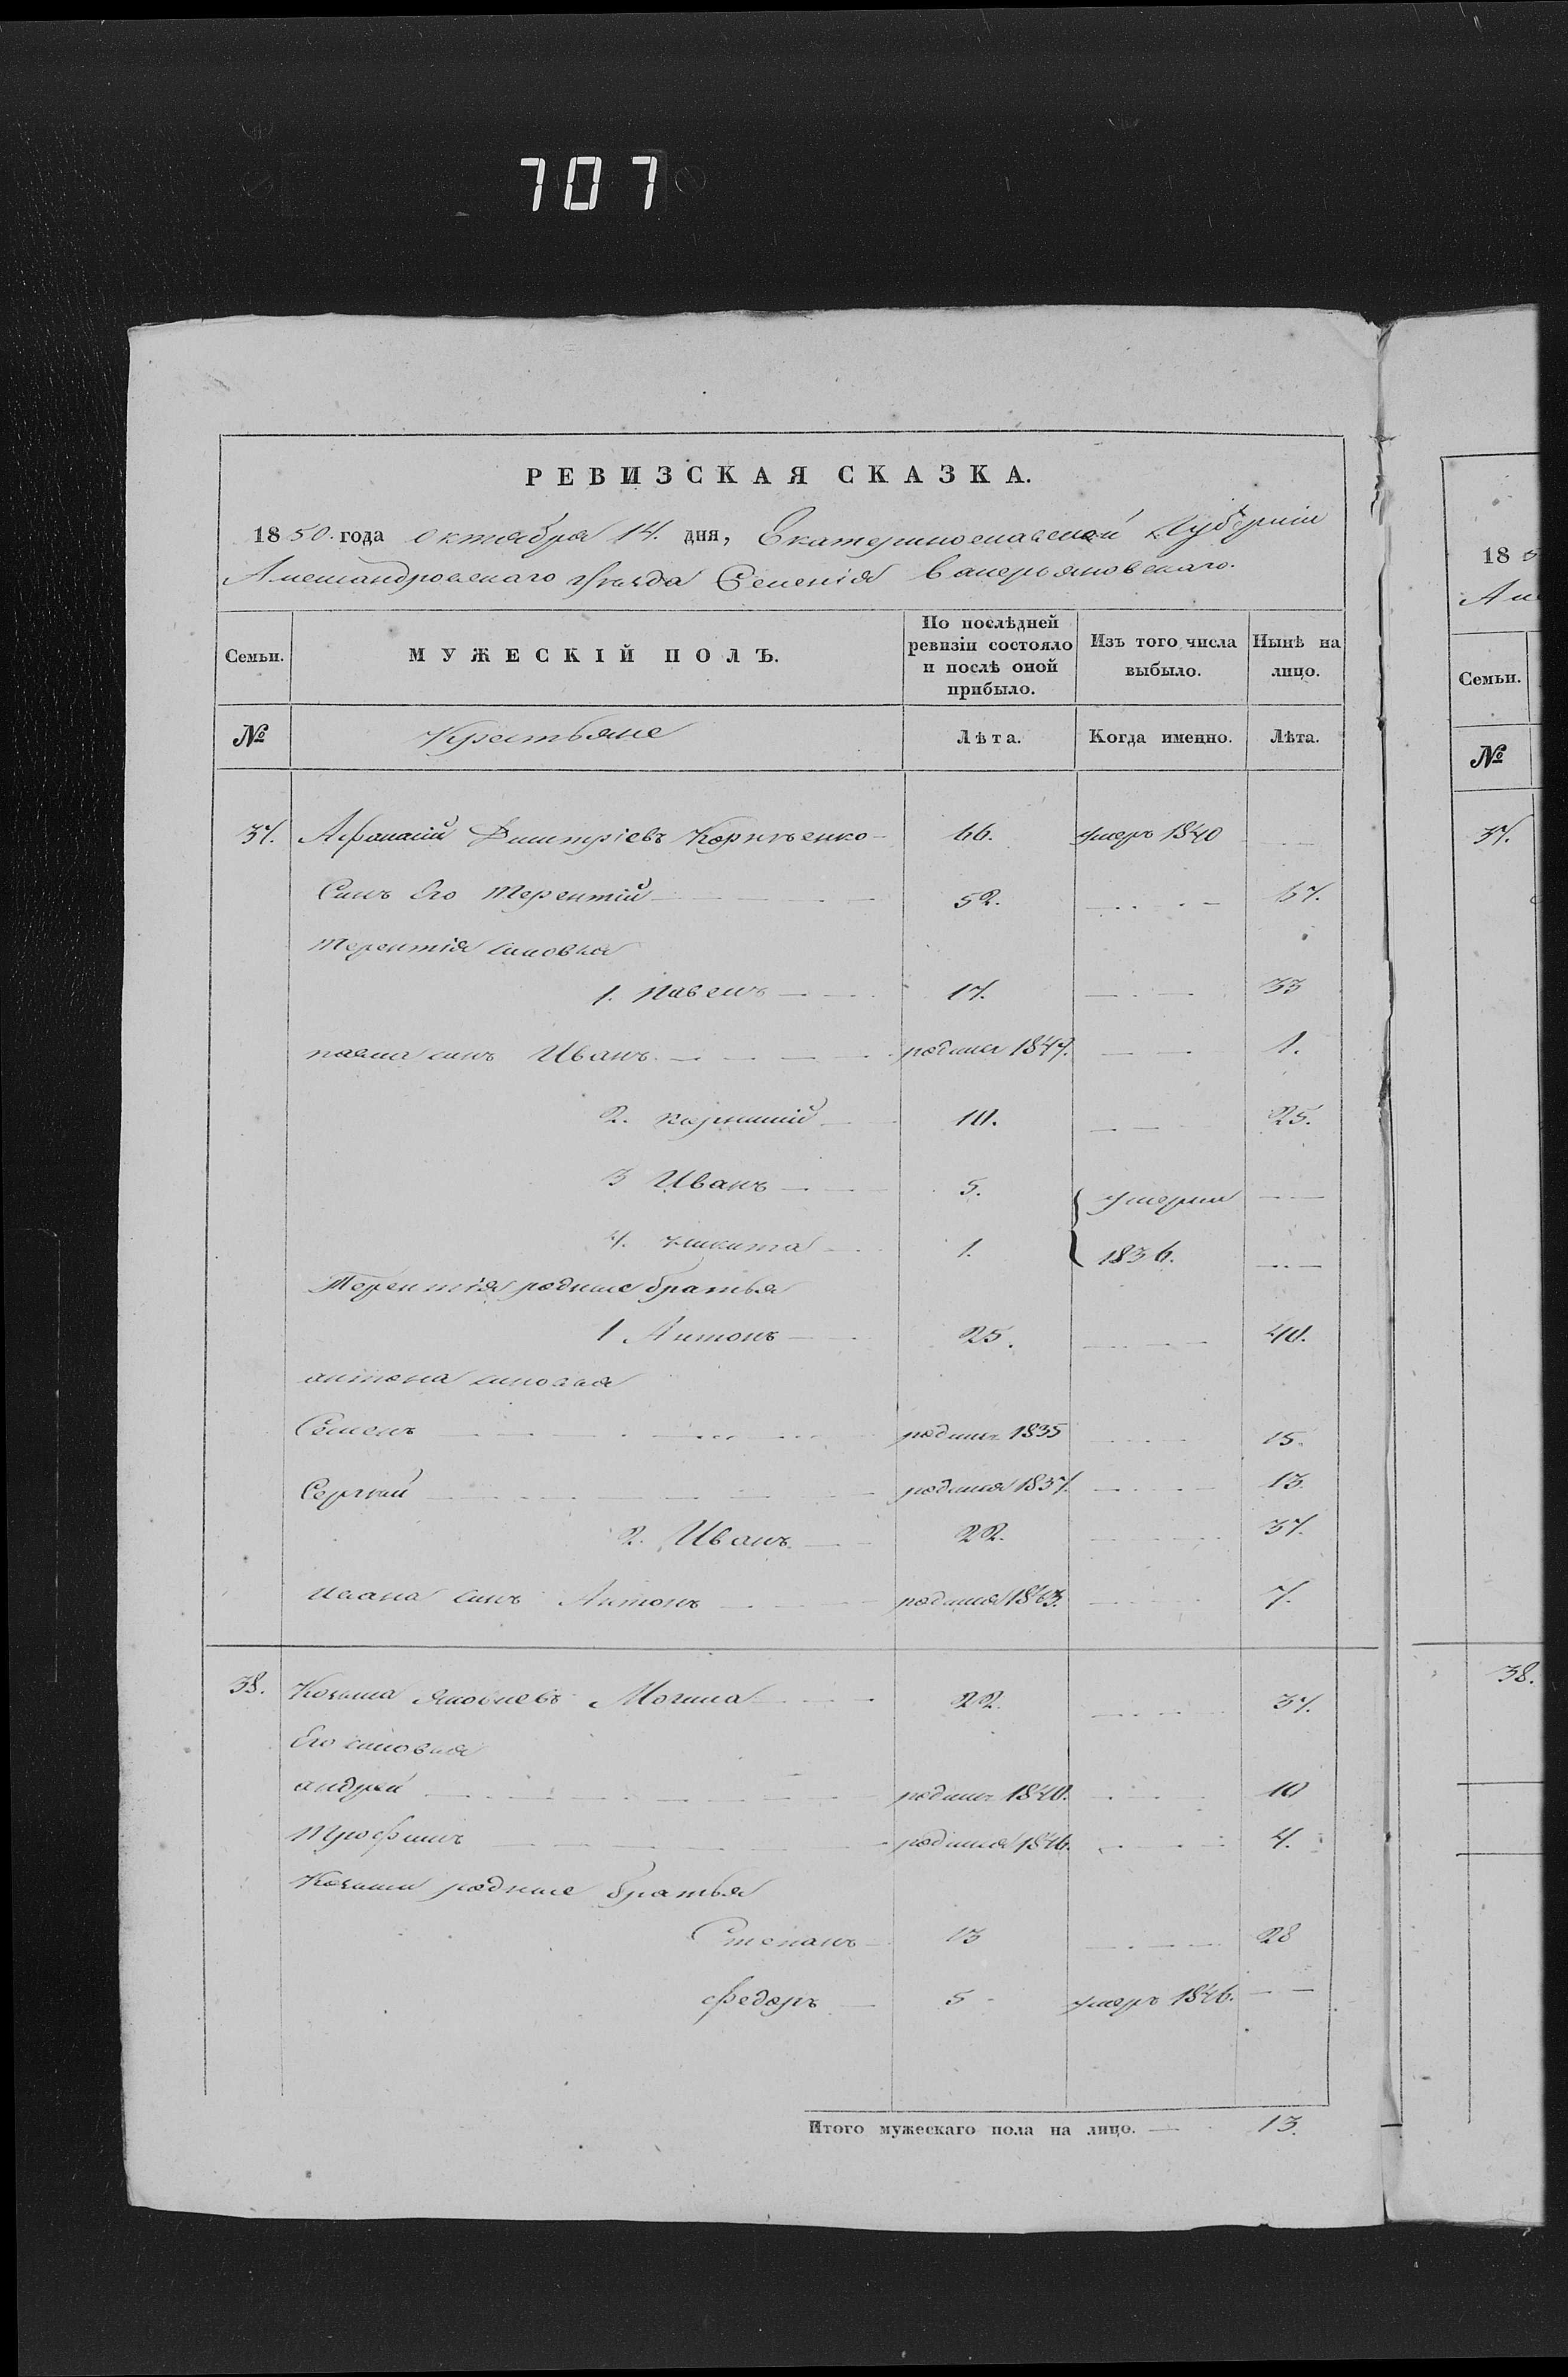 707
РЕВИЗСКАЯ СКАЗКА.
1850. года октября 14. дня, Екатеринославской Губерніи
Александровскаго Уѣзда Селенія Валерьяновскаго.
Семьи.
МУЖЕСКІЙ ПОЛЪ.
По послѣдней ревизіи состояло и послѣ оной прибыло.
Изъ того числа выбыло.
Нынѣ на лицо.
№ Крестьяне Лѣта. Когда именно. Лѣта.
37. Афанасій Дмитріевъ Корнѣенко 66. умеръ 1840
Синъ Его Терентій 52. 67.
Терентія синовья
1. Павелъ 17. 33
павла синъ Иванъ родился 1849. 1.
2. 10. 25.
3 Иванъ 5. умерли
4. Никита 1. 1836.
Терентія родные братья
1 Антонъ 25. 40.
антона синовья
Семенъ родилъ 1835 15.
Сергѣй родился 1837. 13.
2. Иванъ 22. 37.
ивана синъ Антонъ родился 1843. 7.
38. Козьма Яковлевъ Могила 22. 37.
Его синовья
андрей родилъ 1840. 10
Трофимъ родился 1846. 4.
Козьми родные братья
Степанъ 13 28
Федоръ 5 умеръ 1846.
Итого мужескаго пола на лицо. 13.
18 5
Але
Семьи.
№
37.
38.